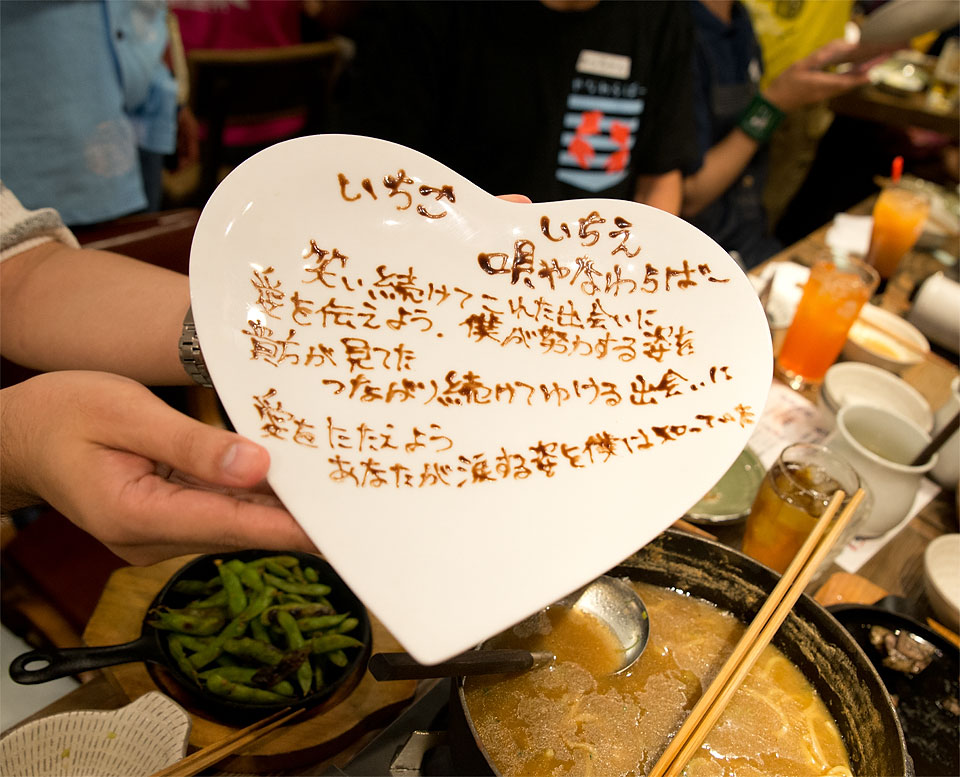 いちご
いちえ
唄やなわらばー
笑い続けてこれた出会いに
愛を伝えよう. 僕が努力する姿を
貴方が見てた
つながり続けてゆける出会いに
愛をたたえよう
あなたが涙する姿を僕は知ってた